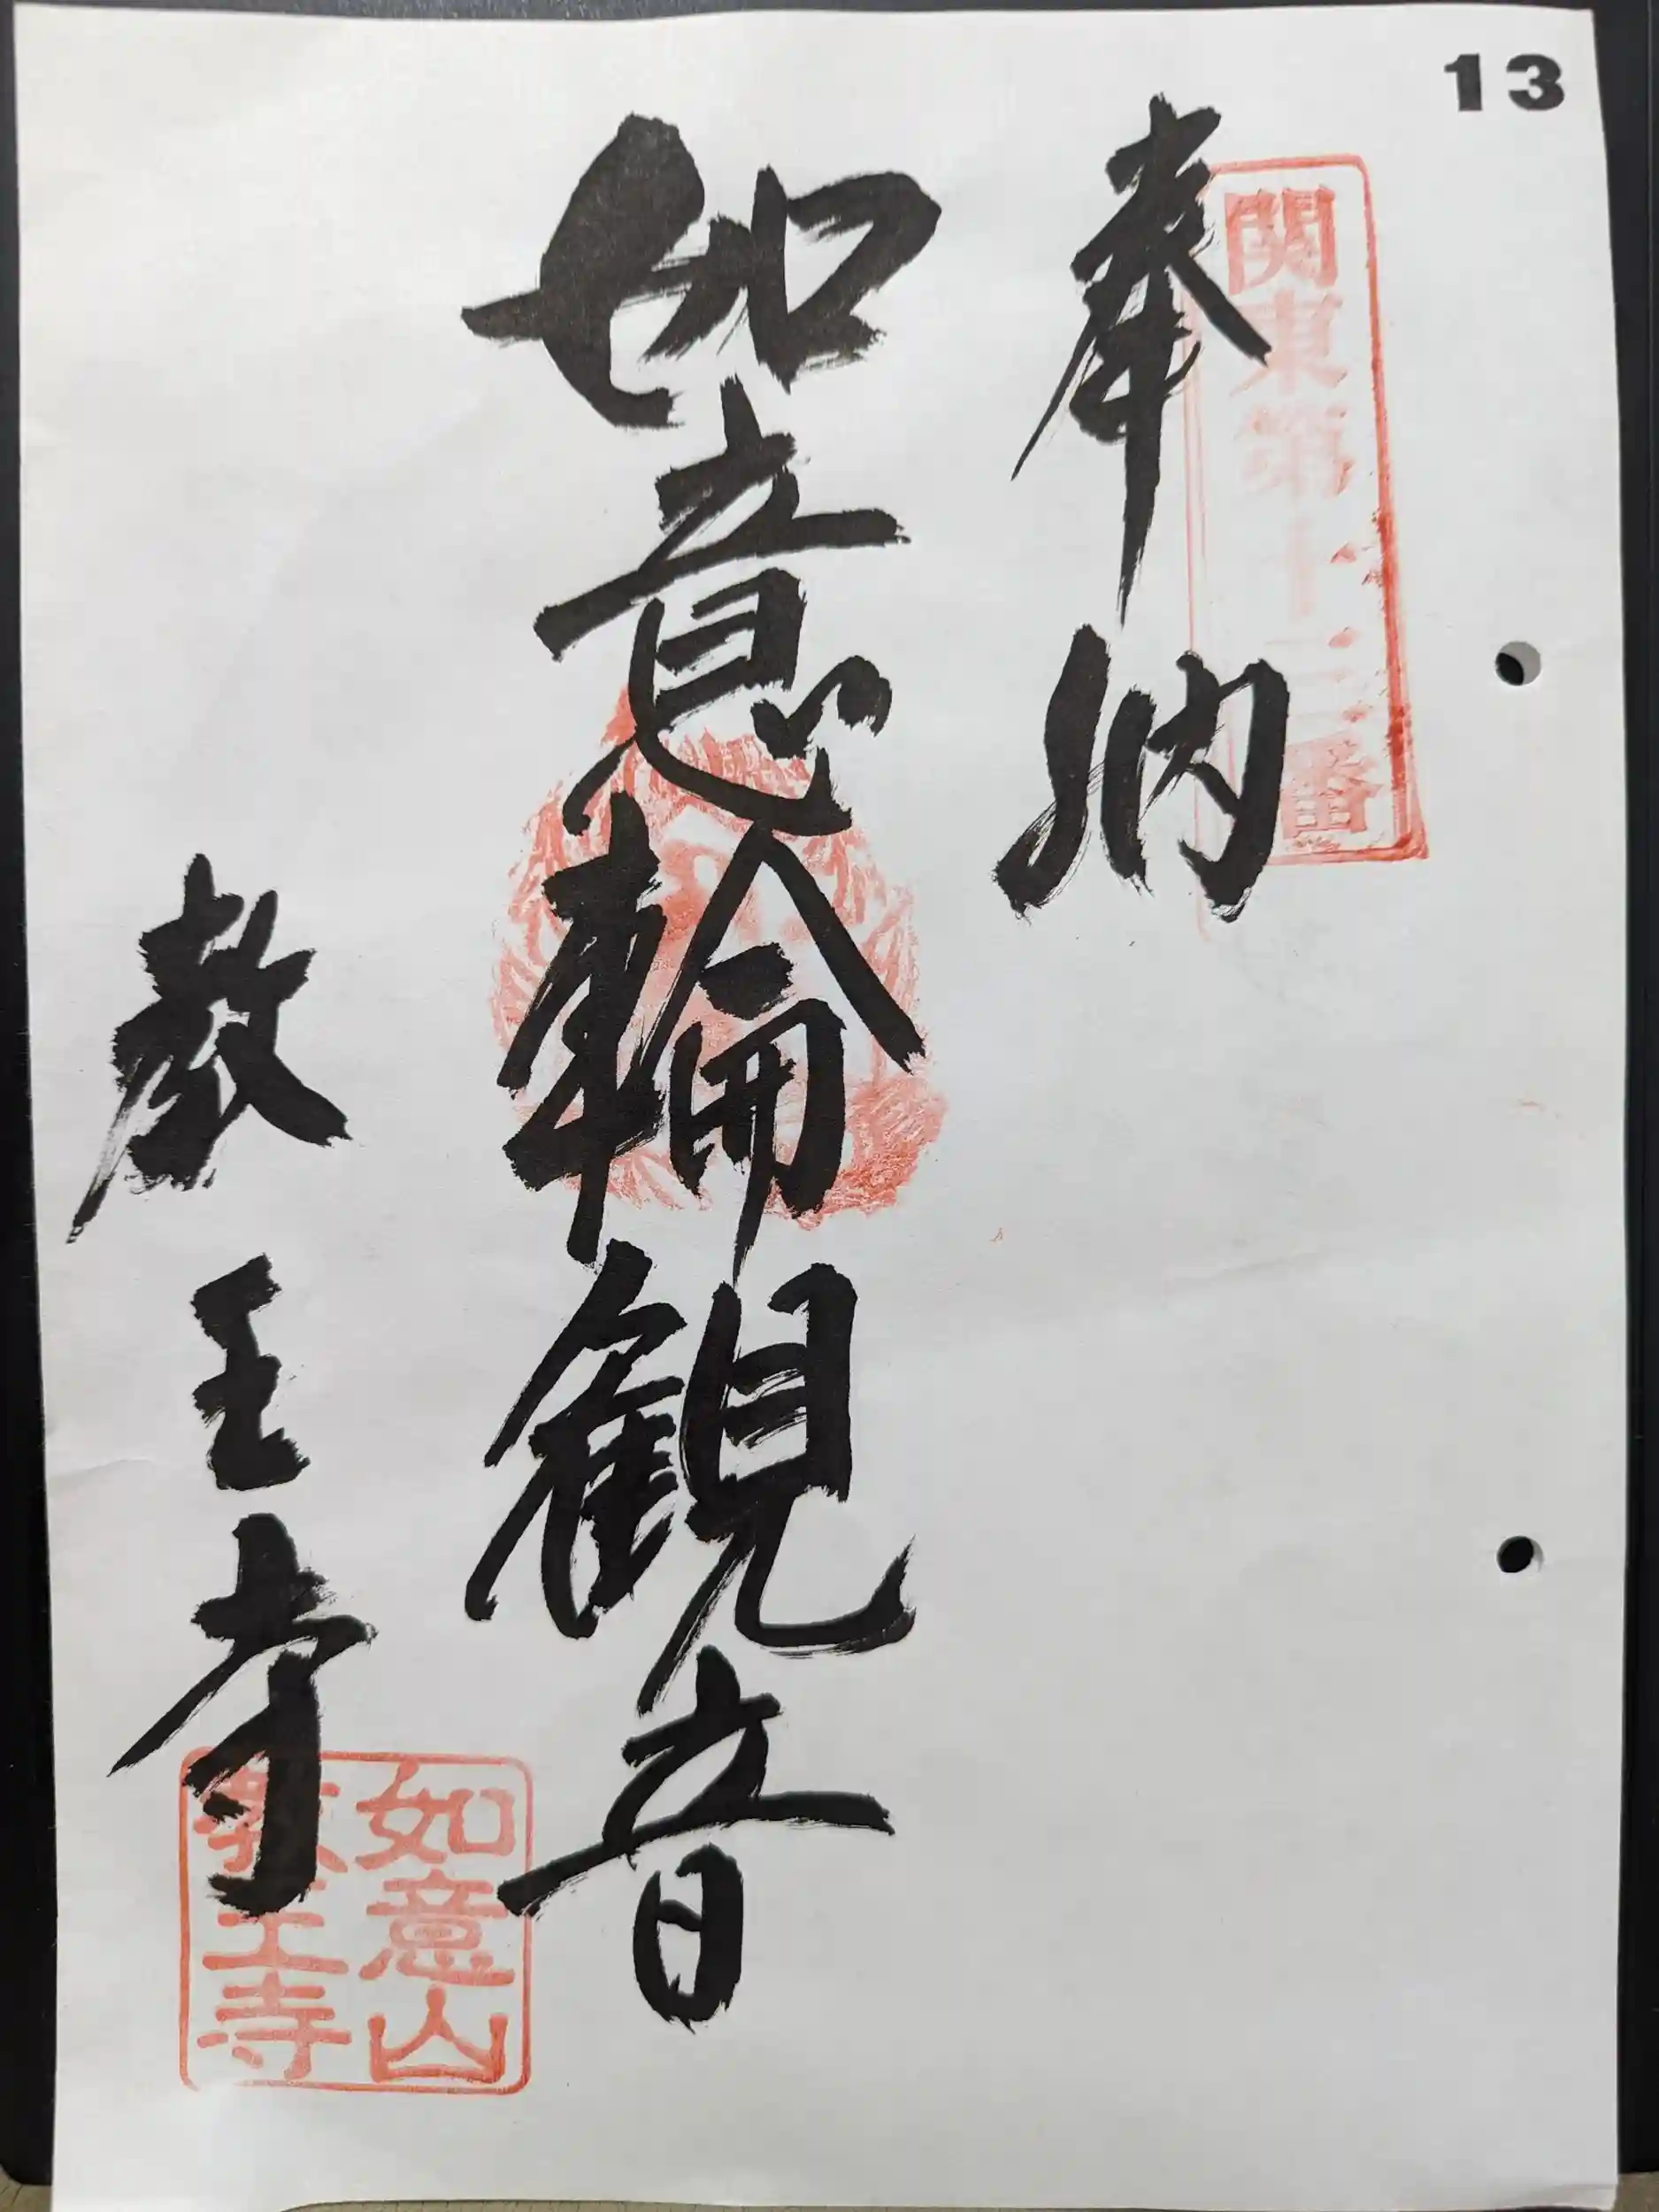 13
関東第十三番
奉納
如意輪観音
教王寺
如意山
教王寺